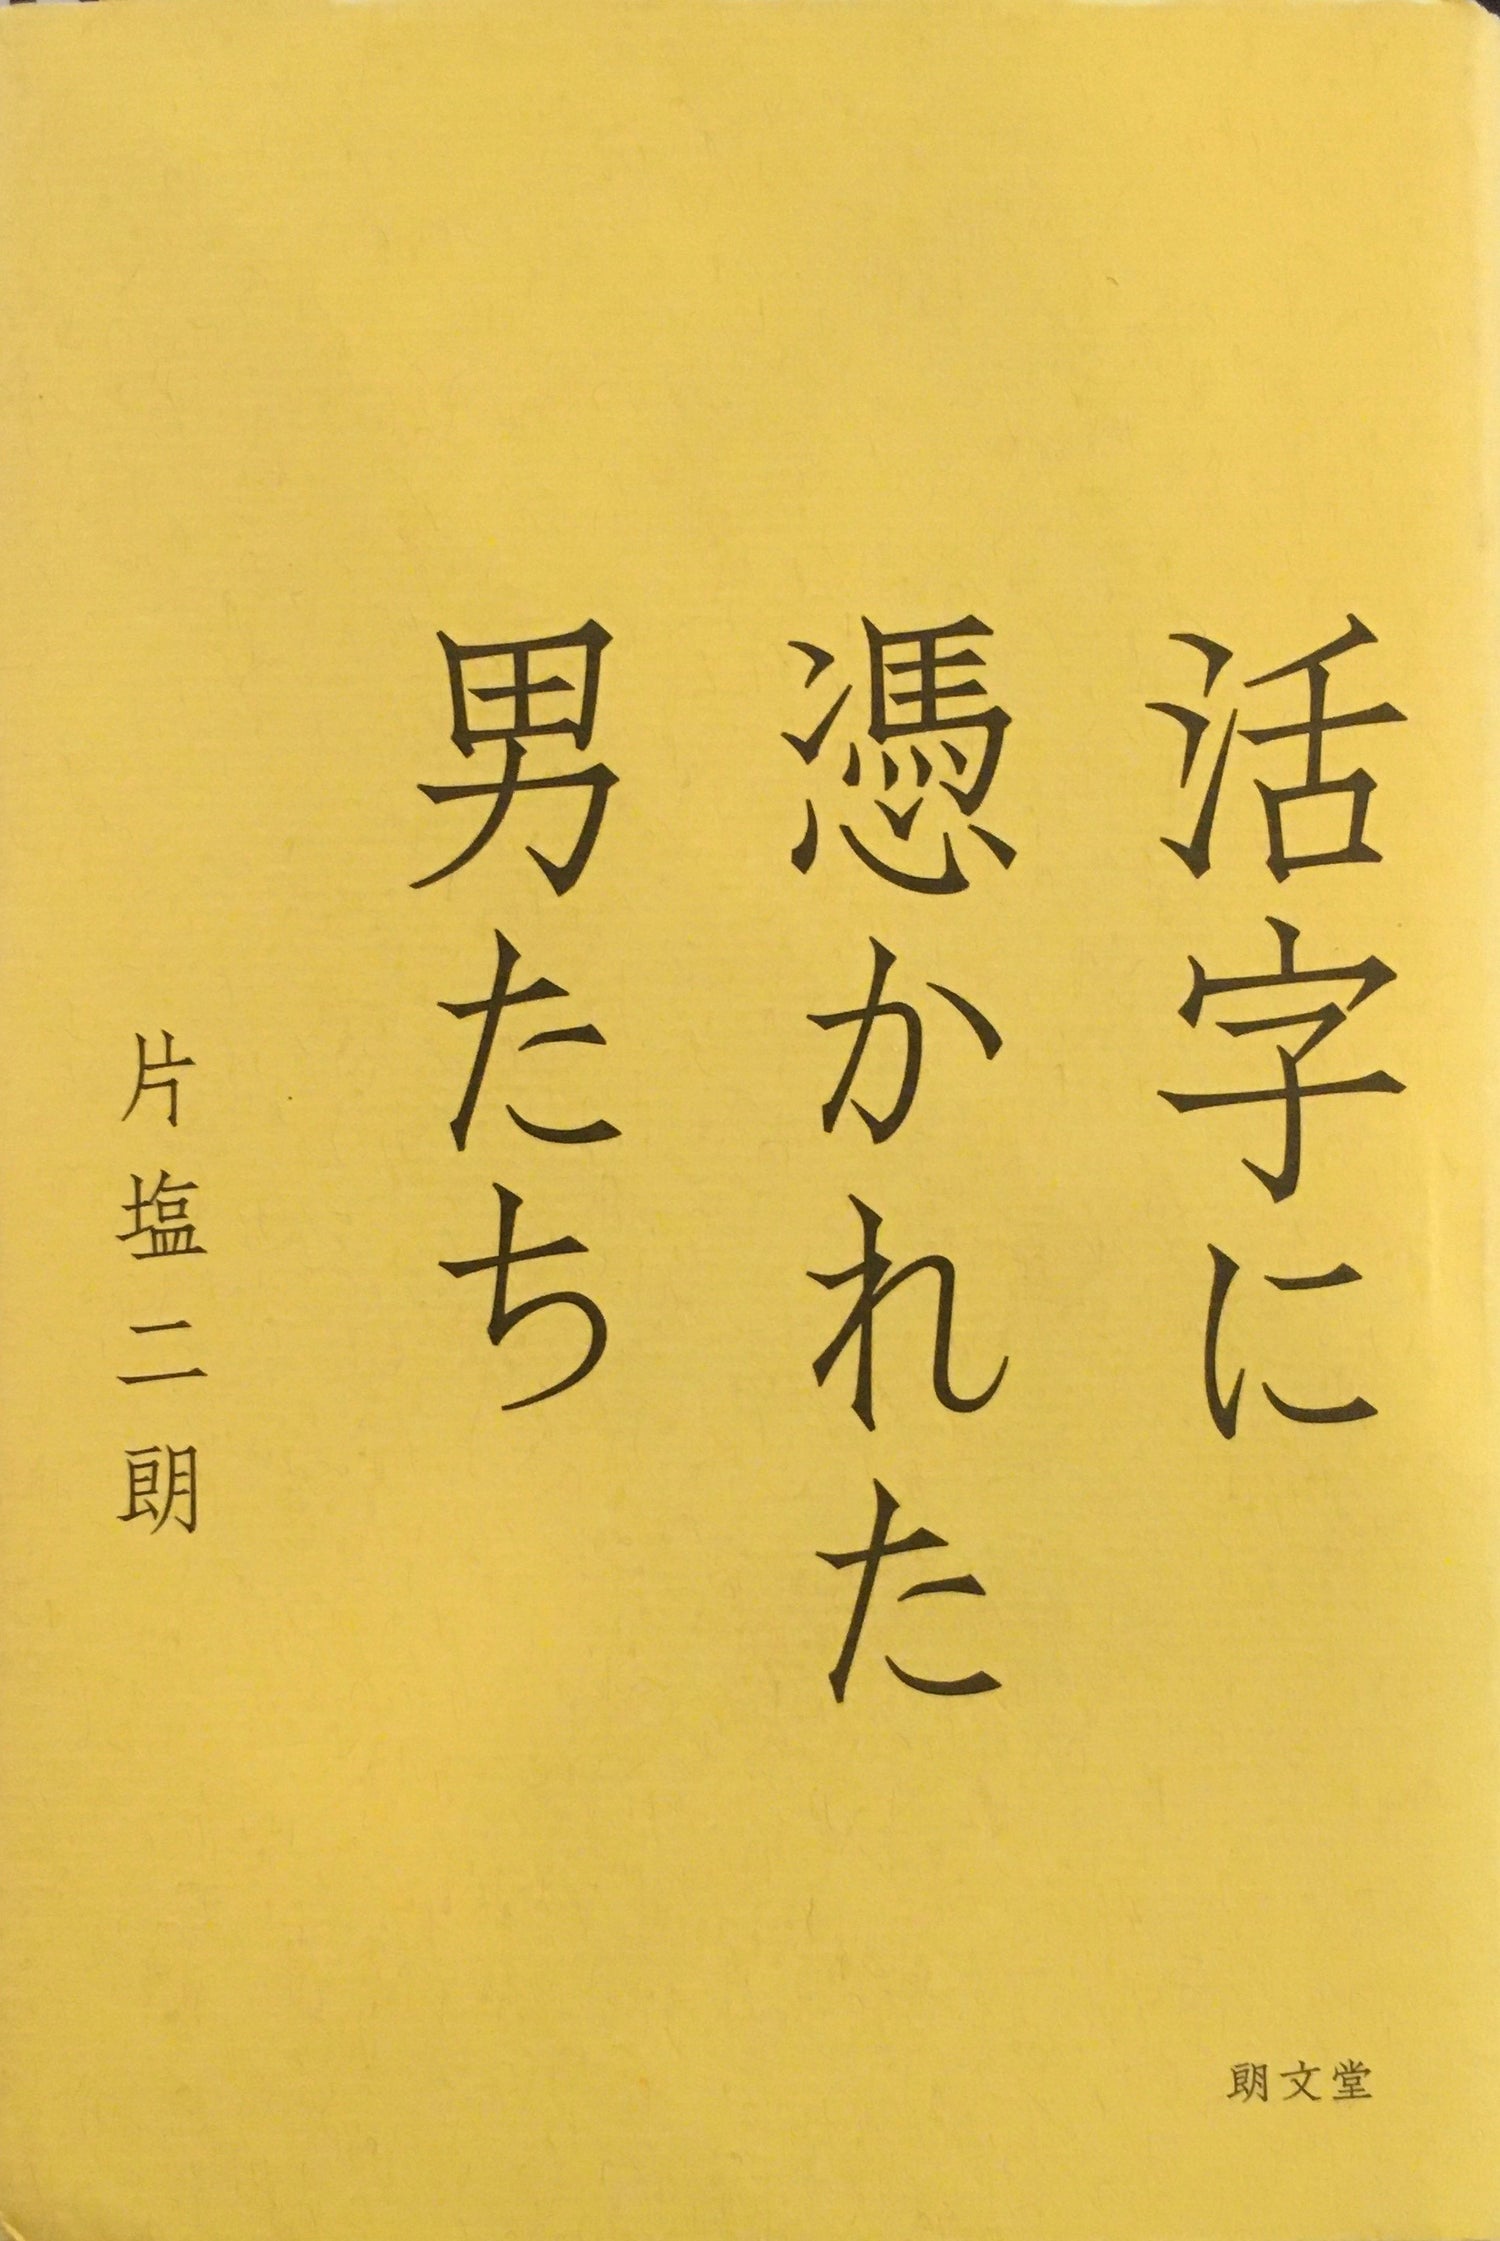 活字に
憑かれた
男たち
片塩二朗
朗文堂